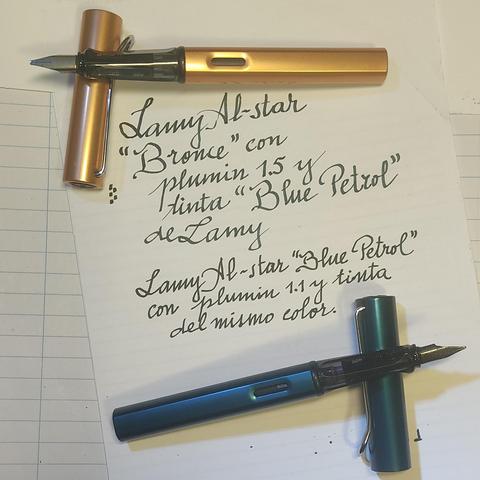 Lamy Al-star
"Bronce" con
plumin 1.5 y
tinta "Blue Petrol"
de Lamy
Lamy Al-star "Blue Petrol"
con plumin 1.1 y tinta
del mismo color.